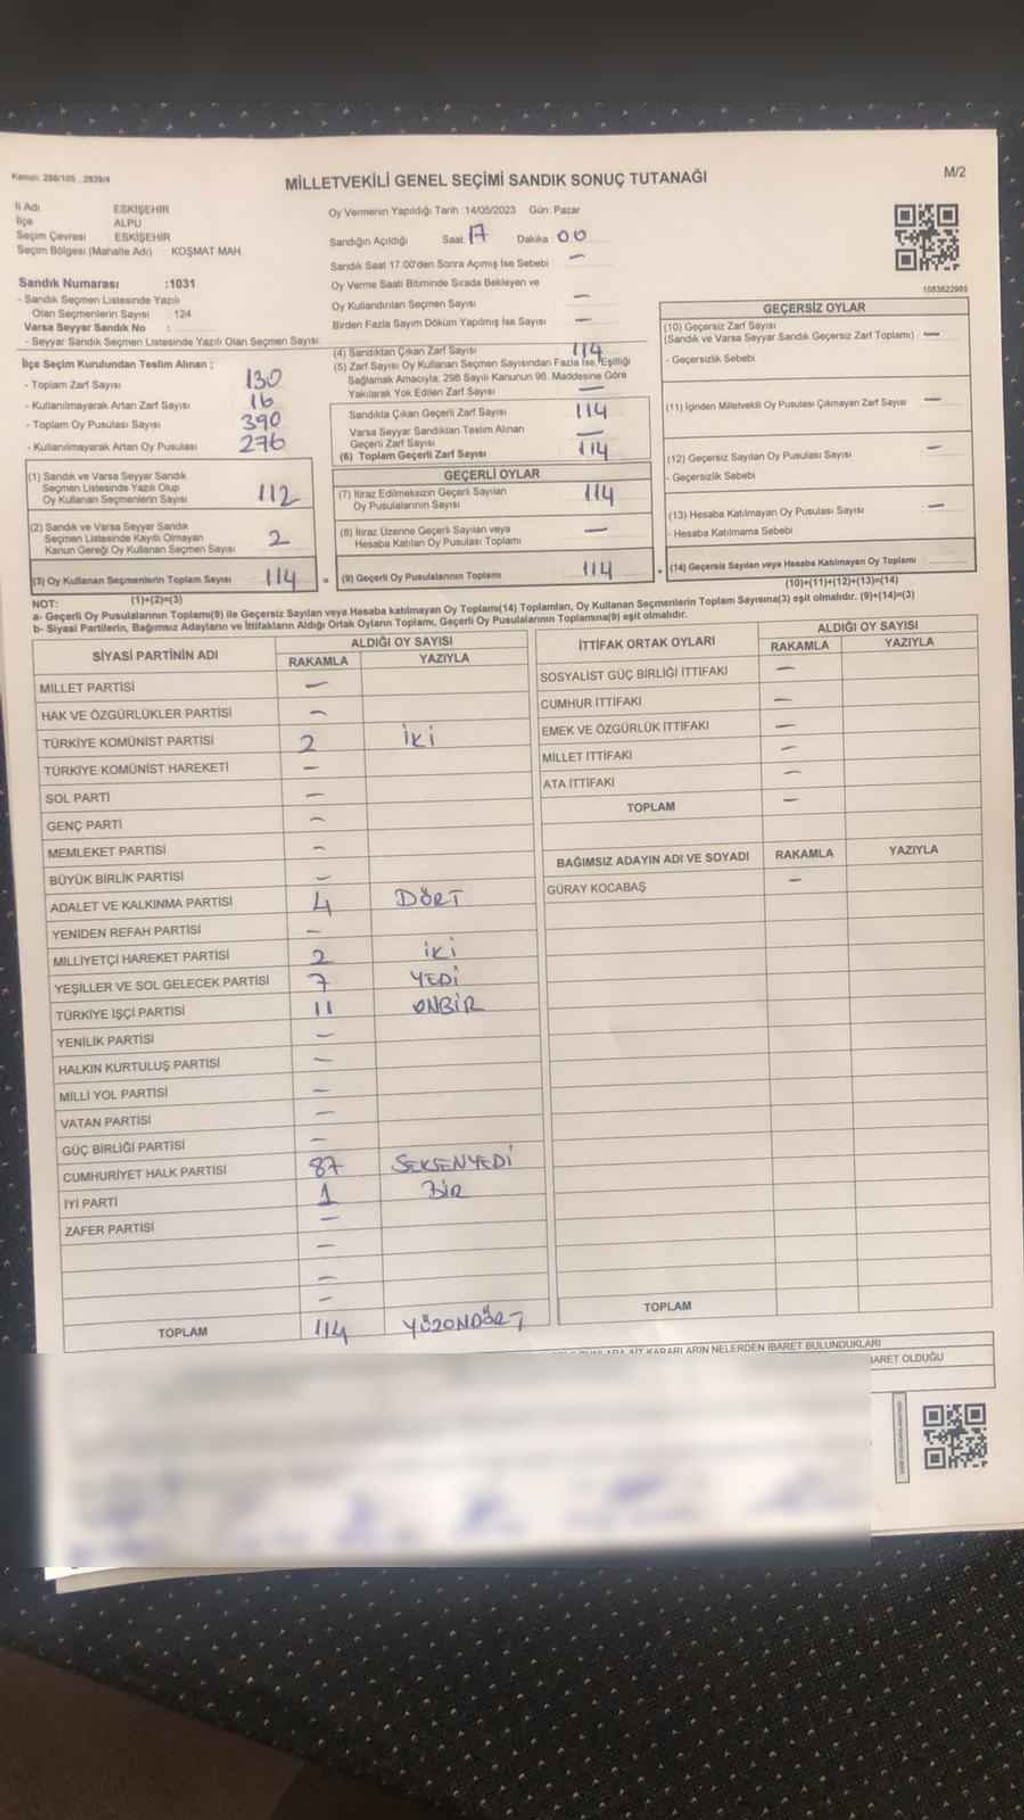 Kanun: 298/105 , 2839/4
MİLLETVEKİLİ GENEL SEÇİMİ SANDIK SONUÇ TUTANAĞI
M/2
İl Adı ESKİŞEHİR
İlçe ALPU
Seçim Çevresi ESKİŞEHİR
Seçim Bölgesi (Mahalle Adı) KOŞMAT MAH.
Sandık Numarası :1031
- Sandık Seçmen Listesinde Yazılı
Olan Seçmenlerin Sayısı 124
Varsa Seyyar Sandık No :
- Seyyar Sandık Seçmen Listesinde Yazılı Olan Seçmen Sayısı
İlçe Seçim Kurulundan Teslim Alınan ;
- Toplam Zarf Sayısı 130
- Kullanılmayarak Artan Zarf Sayısı 16
- Toplam Oy Pusulası Sayısı 390
- Kullanılmayarak Artan Oy Pusulası 276
(1) Sandık ve Varsa Seyyar Sandık
Seçmen Listesinde Yazılı Olup
Oy Kullanan Seçmenlerin Sayısı 112
(2) Sandık ve Varsa Seyyar Sandık
Seçmen Listesinde Kayıtlı Olmayan
Kanun Gereği Oy Kullanan Seçmen Sayısı 2
(3) Oy Kullanan Seçmenlerin Toplam Sayısı 114 =
(1)+(2)=(3)
Oy Vermenin Yapıldığı Tarih :14/05/2023 Gün: Pazar
Sandığın Açıldığı Saat 17 Dakika 00
Sandık Saat 17.00'den Sonra Açılmış İse Sebebi —
Oy Verme Saati Bitiminde Sırada Bekleyen ve
Oy Kullandırılan Seçmen Sayısı —
Birden Fazla Sayım Döküm Yapılmış İse Sayısı —
(4) Sandıktan Çıkan Zarf Sayısı 114
(5) Zarf Sayısı Oy Kullanan Seçmen Sayısından Fazla İse, Eşitliği
Sağlamak Amacıyla, 298 Sayılı Kanunun 98. Maddesine Göre
Yakılarak Yok Edilen Zarf Sayısı —
Sandıkta Çıkan Geçerli Zarf Sayısı 114
Varsa Seyyar Sandıktan Teslim Alınan
Geçerli Zarf Sayısı —
(6) Toplam Geçerli Zarf Sayısı 114
GEÇERLİ OYLAR
(7) İtiraz Edilmeksizin Geçerli Sayılan
Oy Pusulalarının Sayısı 114
(8) İtiraz Üzerine Geçerli Sayılan veya
Hesaba Katılan Oy Pusulası Toplamı —
(9) Geçerli Oy Pusulalarının Toplamı 114
1083622905
GEÇERSİZ OYLAR
(10) Geçersiz Zarf Sayısı
(Sandık ve Varsa Seyyar Sandık Geçersiz Zarf Toplamı) —
- Geçersizlik Sebebi
(11) İçinden Milletvekili Oy Pusulası Çıkmayan Zarf Sayısı —
(12) Geçersiz Sayılan Oy Pusulası Sayısı —
- Geçersizlik Sebebi
(13) Hesaba Katılmayan Oy Pusulası Sayısı —
- Hesaba Katılmama Sebebi
(14) Geçersiz Sayılan veya Hesaba Katılmayan Oy Toplamı —
(10)+(11)+(12)+(13)=(14)
NOT:
a- Geçerli Oy Pusulalarının Toplamı(9) ile Geçersiz Sayılan veya Hesaba katılmayan Oy Toplamı(14) Toplamları, Oy Kullanan Seçmenlerin Toplam Sayısına(3) eşit olmalıdır. (9)+(14)=(3)
b- Siyasi Partilerin, Bağımsız Adayların ve İttifakların Aldığı Ortak Oyların Toplamı, Geçerli Oy Pusulalarının Toplamına(9) eşit olmalıdır.
SİYASİ PARTİNİN ADI ALDIĞI OY SAYISI
RAKAMLA YAZIYLA
MİLLET PARTİSİ —
HAK VE ÖZGÜRLÜKLER PARTİSİ —
TÜRKİYE KOMÜNİST PARTİSİ 2 İKİ
TÜRKİYE KOMÜNİST HAREKETİ —
SOL PARTİ —
GENÇ PARTİ —
MEMLEKET PARTİSİ —
BÜYÜK BİRLİK PARTİSİ —
ADALET VE KALKINMA PARTİSİ 4 DÖRT
YENİDEN REFAH PARTİSİ —
MİLLİYETÇİ HAREKET PARTİSİ 2 İKİ
YEŞİLLER VE SOL GELECEK PARTİSİ 7 YEDİ
TÜRKİYE İŞÇİ PARTİSİ 11 ONBİR
YENİLİK PARTİSİ —
HALKIN KURTULUŞ PARTİSİ —
MİLLİ YOL PARTİSİ —
VATAN PARTİSİ —
GÜÇ BİRLİĞİ PARTİSİ —
CUMHURİYET HALK PARTİSİ 87 SEKSENYEDİ
İYİ PARTİ 1 BİR
ZAFER PARTİSİ —
—
—
—
TOPLAM 114 YÜZONDÖRT
İTTİFAK ORTAK OYLARI ALDIĞI OY SAYISI
RAKAMLA YAZIYLA
SOSYALİST GÜÇ BİRLİĞİ İTTİFAKI —
CUMHUR İTTİFAKI —
EMEK VE ÖZGÜRLÜK İTTİFAKI —
MİLLET İTTİFAKI —
ATA İTTİFAKI —
TOPLAM —
BAĞIMSIZ ADAYIN ADI VE SOYADI RAKAMLA YAZIYLA
GÜRAY KOCABAŞ —
TOPLAM
KARARLARIN NELERDEN İBARET BULUNDUKLARI
İBARET OLDUĞU